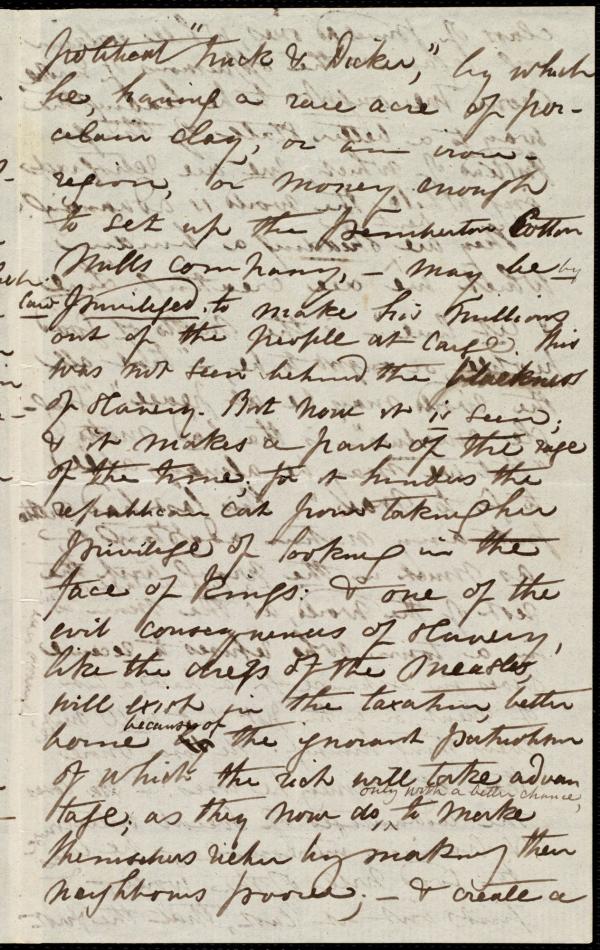 political "truck & Dicker," by which
he, having a rare acre of por-
celain clay, or an iron-
region, or money enough
to set up the Pemberton Cotton
Mills company, - may be by
law privileged, to make his millions
out of the people at large. This
was not seen behind the blackness
of slavery. But now it is seen;
& it makes a part of the rage
of the time; for it hinders the
republican cat from taking her
privilege of looking in the
face of Kings: & one of the
evil consequences of slavery,
like the dregs of the measles,
will exist in the taxation, better
borne because of the ignorant patriotism
of which the rich will take advan
only with a better chance,
tage, as they now do, to make
themselves richer by making their
neighbours poorer; - & create a